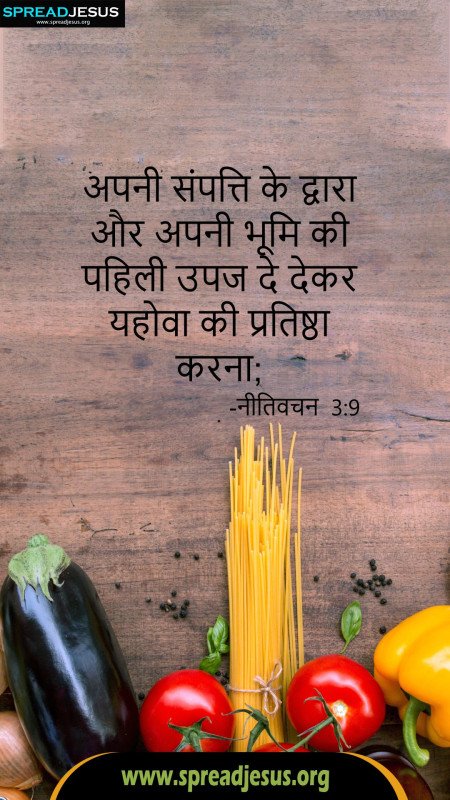 SPREADJESUS
www.spreadjesus.org
अपनी संपत्ति के द्वारा
और अपनी भूमि की
पहिली उपज दे देकर
यहोवा की प्रतिष्ठा
करना;
-नीतिवचन 3:9
www.spreadjesus.org